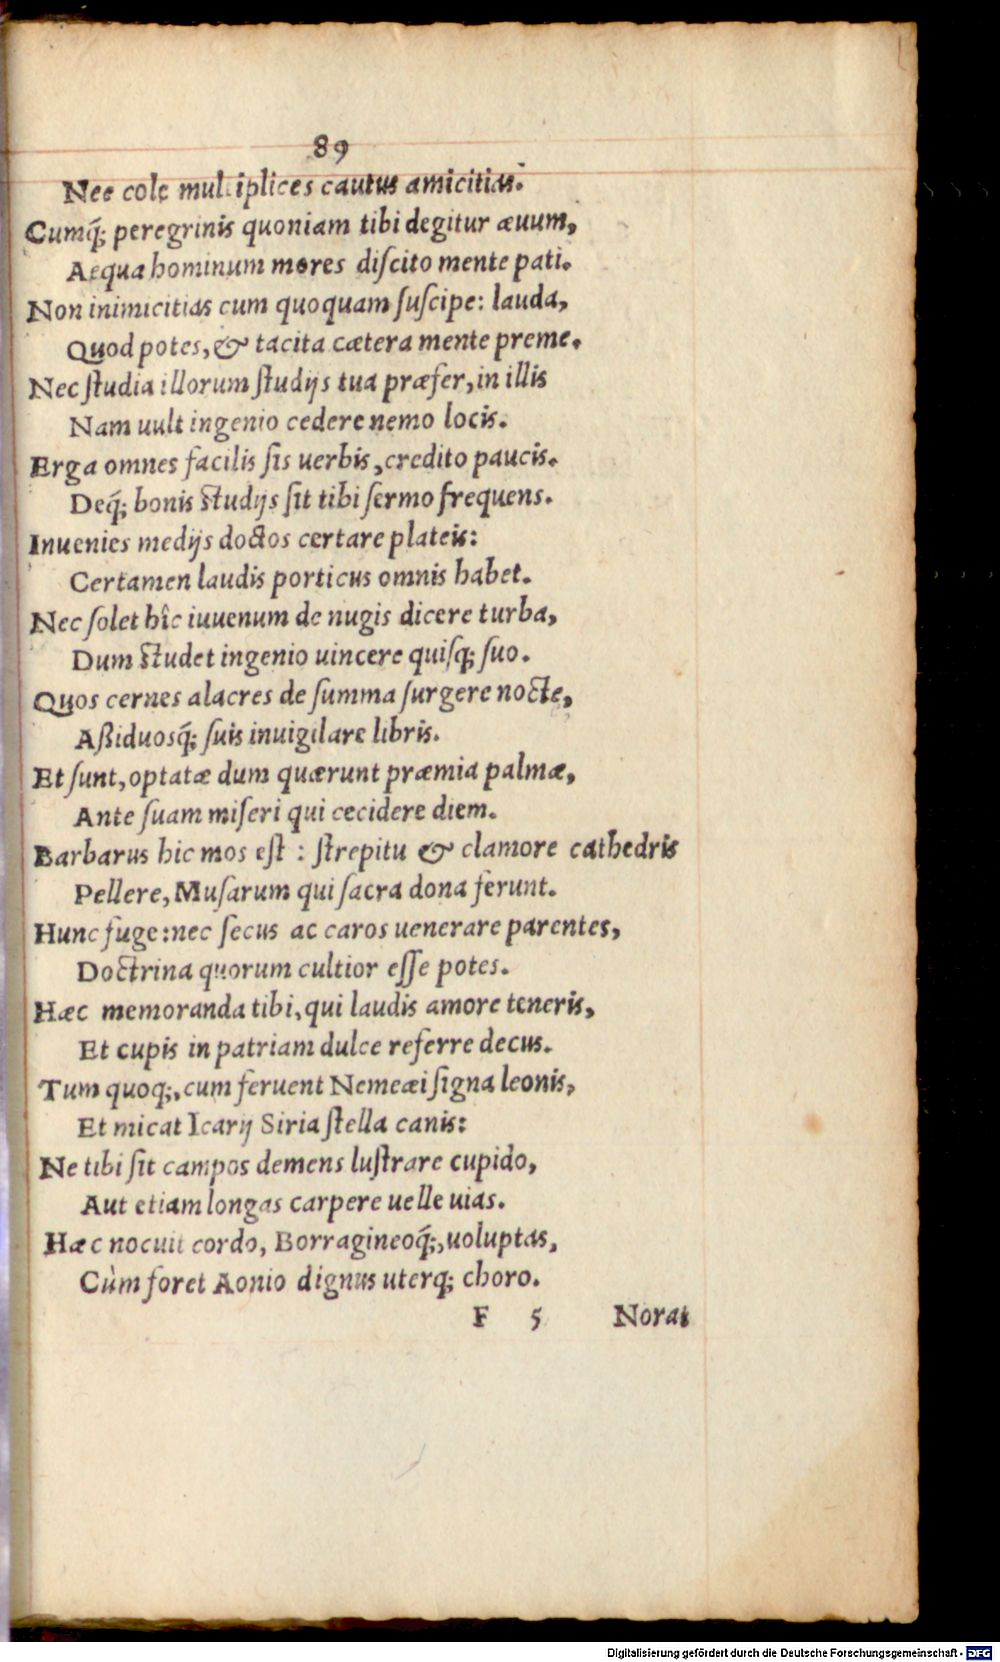 89
Nec cole multiplices cautus amicitias.
Cumq́; peregrinis quoniam tibi degitur ævum,
Aequa hominum mores discito mente pati.
Non inimicitias cum quoquam suscipe: lauda,
Quod potes, & tacita cætera mente preme.
Nec studia illorum studijs tua præfer, in illis
Nam uult ingenio cedere nemo locis.
Erga omnes facilis sis uerbis, credito paucis.
Deq́; bonis studijs sit tibi sermo frequens.
Inuenies medijs doctos certare plateis:
Certamen laudis porticus omnis habet.
Nec solet hîc iuuenum de nugis dicere turba,
Dum studet ingenio uincere quisq; suo.
Quos cernes alacres de summa surgere nocte,
Aßiduosq́; suis inuigilare libris.
Et sunt, optatæ dum quærunt præmia palmæ,
Ante suam miseri qui cecidere diem.
Barbarus hic mos est : strepitu & clamore cathedris
Pellere, Musarum qui sacra dona ferunt.
Hunc fuge: nec secus ac caros uenerare parentes,
Doctrina quorum cultior esse potes.
Hæc memoranda tibi, qui laudis amore teneris,
Et cupis in patriam dulce referre decus.
Tum quoq;, cum feruent Nemeæi signa leonis,
Et micat Icarij Siria stella canis:
Ne tibi sit campos demens lustrare cupido,
Aut etiam longas carpere uelle uias.
Hæc nocuit cordo, Borragineoq́;, uoluptas,
Cùm foret Aonio dignus uterq; choro.
F 5 Norat
Digitalisierung gefördert durch die Deutsche Forschungsgemeinschaft - DFG